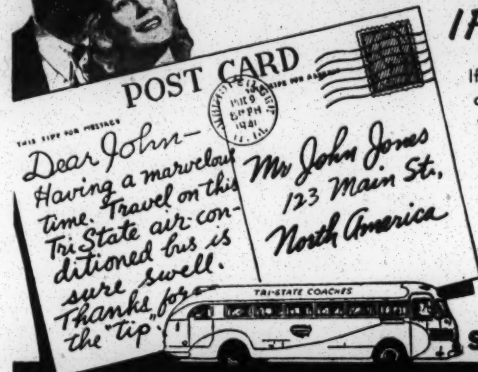 POST CARD
THIS SIDE FOR MESSAGE
SIDE FOR ADDRESS
9
PM
1941
Dear John-
Having a marvelous
time. Travel on this
Tri State air-con-
ditioned bus is
sure swell.
Thanks for
the "tip".
Mr John Jones
123 Main St.,
North America
TRI-STATE COACHES